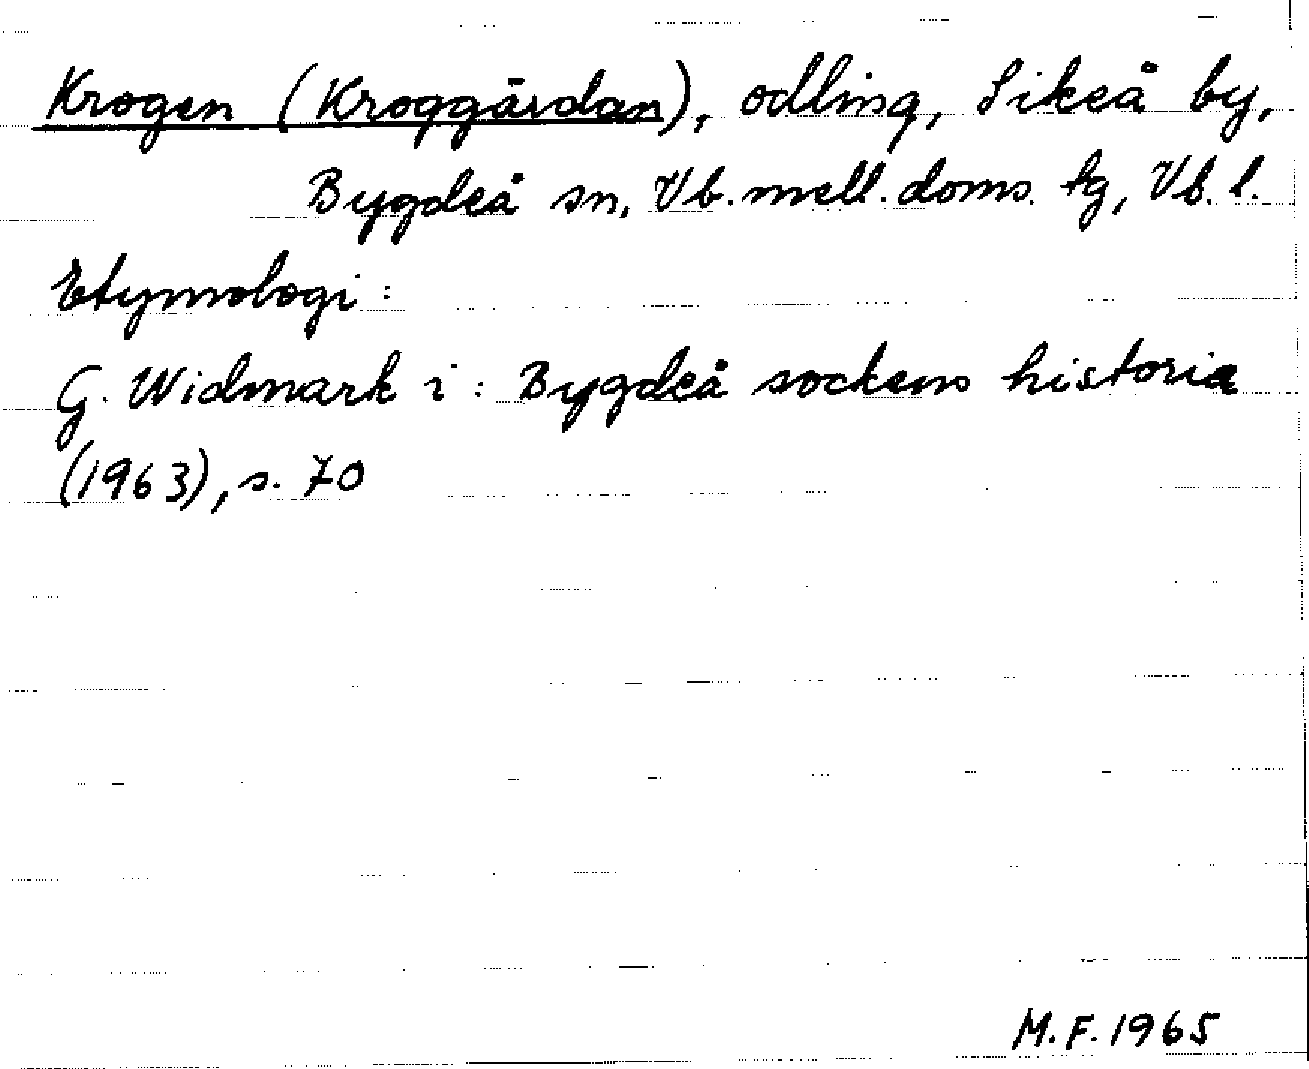 Krogen (Kroggärdan), odling, Sikeå by,
Bygdeå sn, Vb. mell. doms. tg, Vb. l.
Etymologi:
G. Widmark i: Bygdeå sockens historia
(1963), s. 70
M.F. 1965